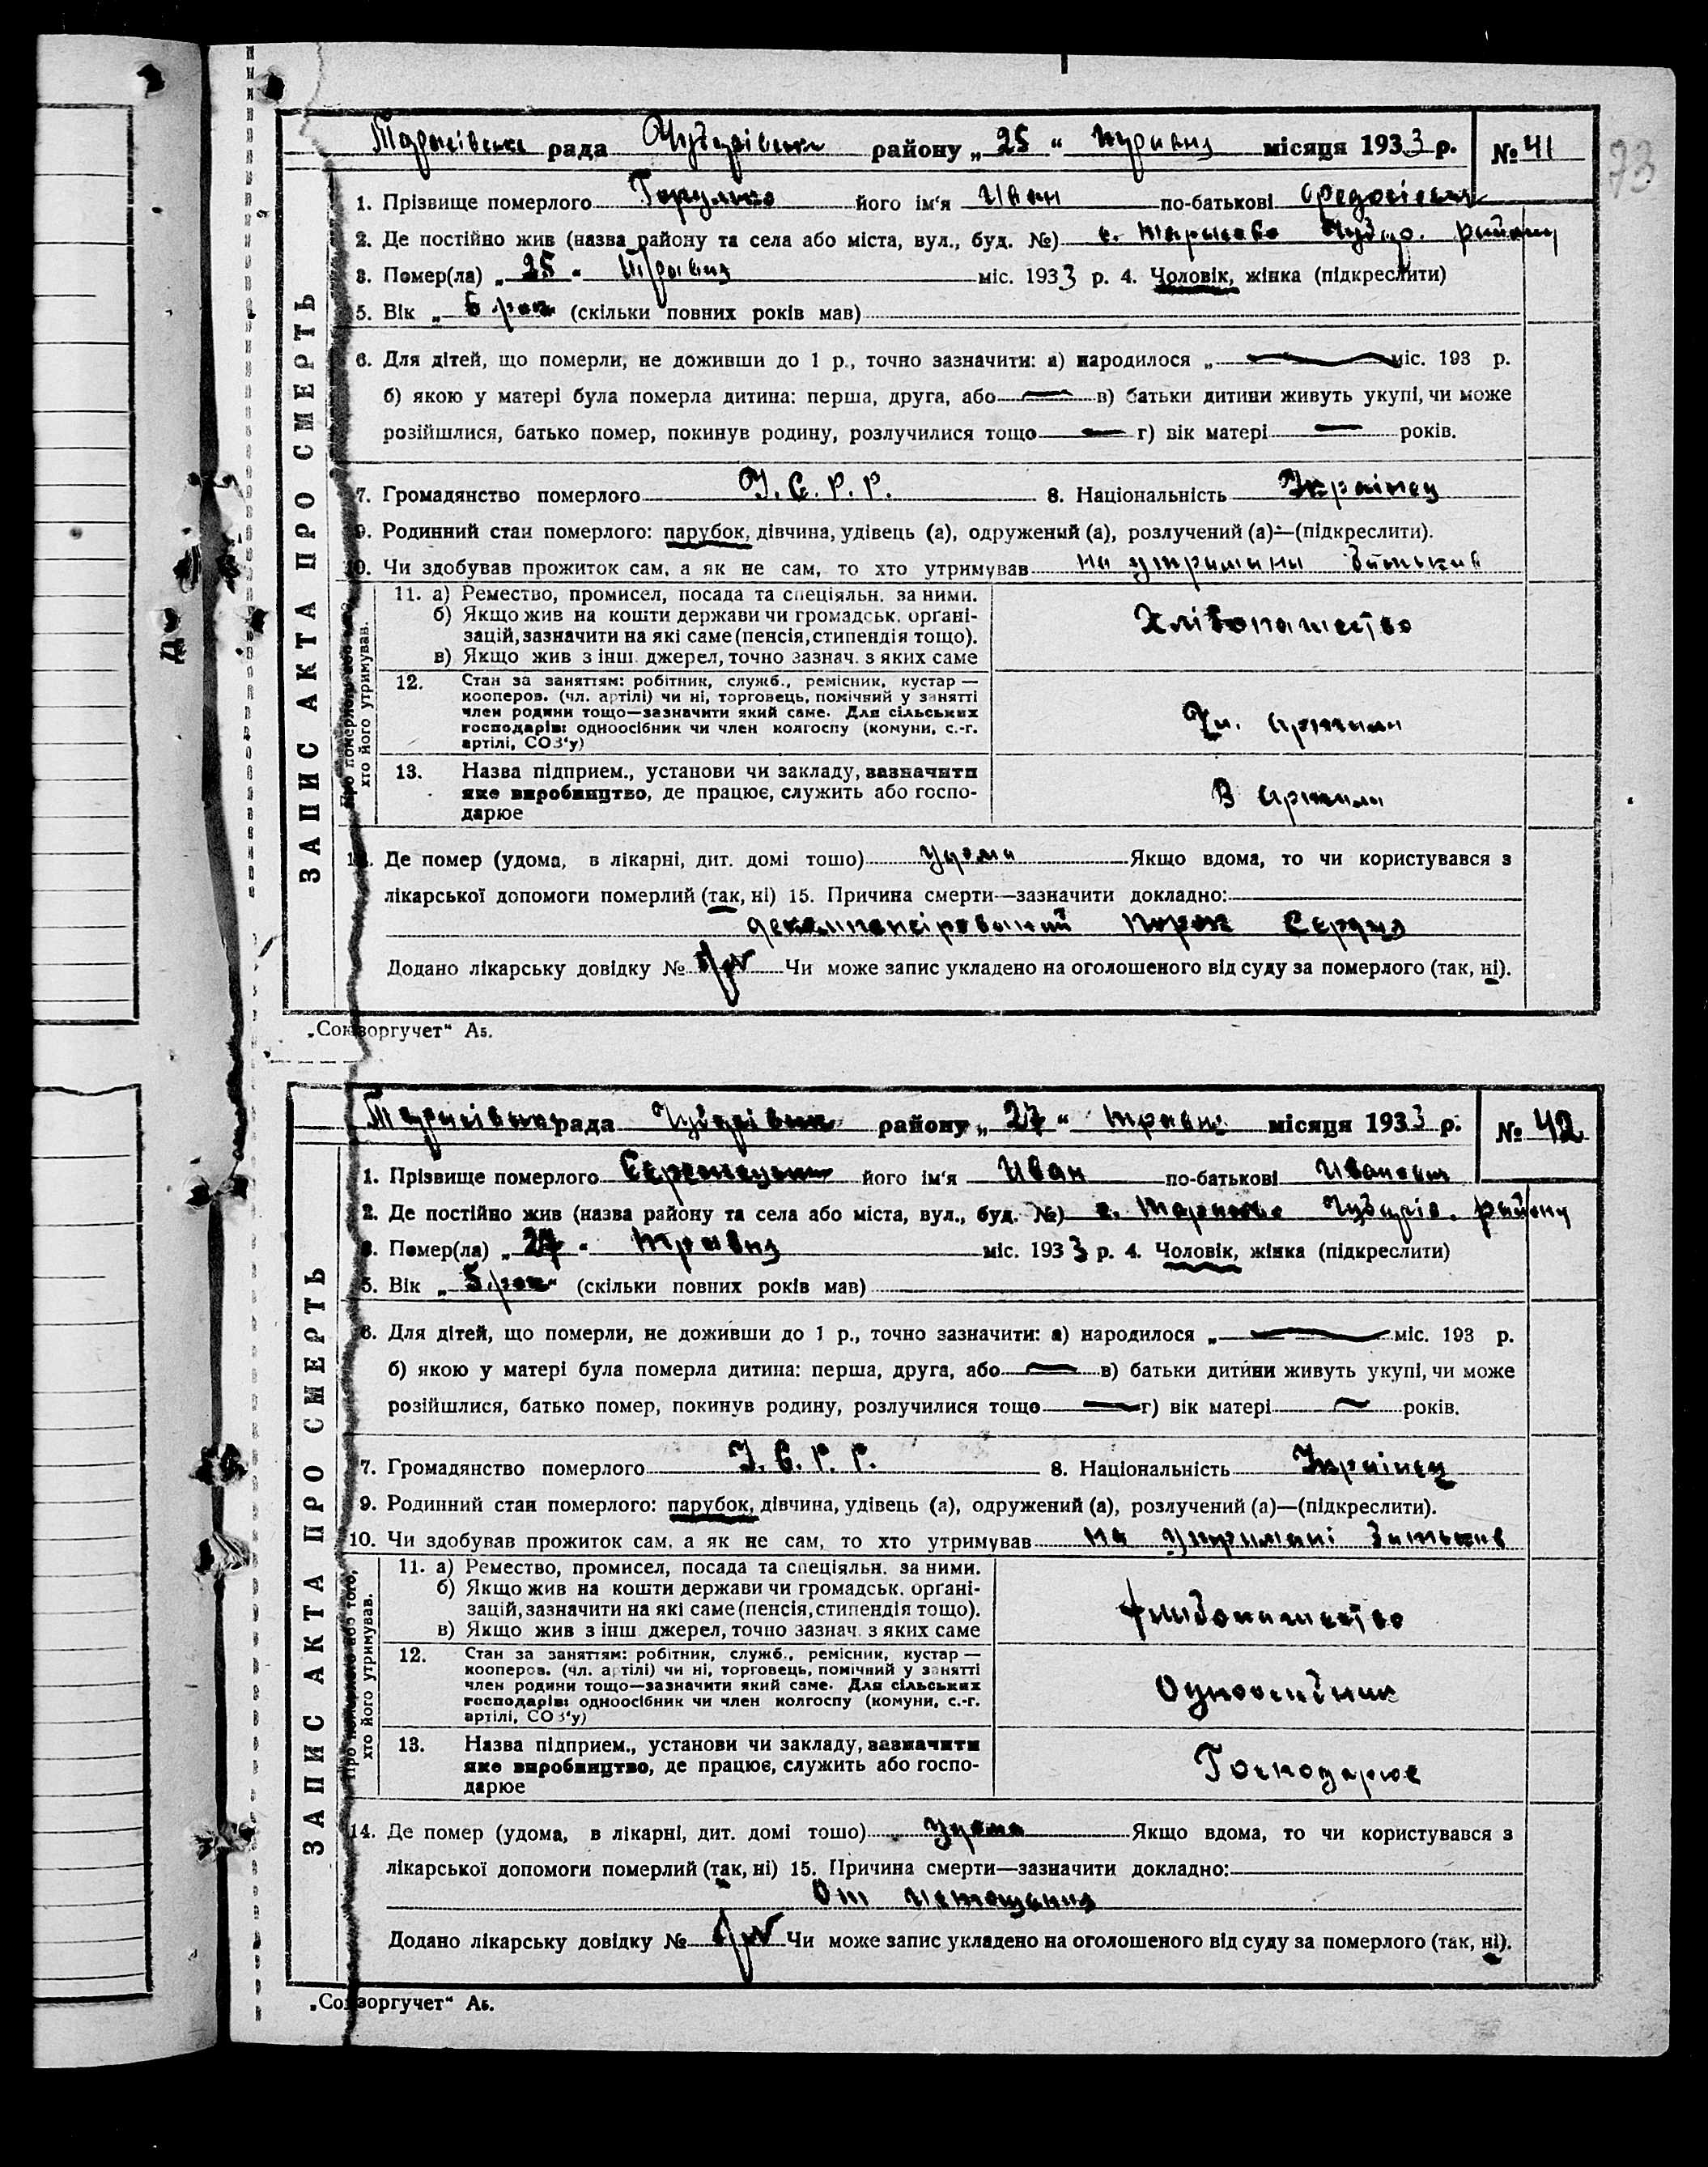 73
рада району „ 25 “ травня місяця 1933 р. № 41
1. Прізвище померлого його ім'я Иван по-батькові
2. Де постійно жив (назва району та села або міста, вул., буд. №) с. району
3. Помер(ла) „ 25 “ Травня міс. 1933 р. 4. Чоловік, жінка (підкреслити)
5. Вік „ (скільки повних років мав)
6. Для дітей, що померли, не доживши до 1 р., точно зазначити: а) народилося „ міс. 193 р.
б) якою у матері була померла дитина: перша, друга, або в) батьки дитини живуть укупі, чи може
розійшлися, батько помер, покинув родину, розлучилися тощо г) вік матері років.
7. Громадянство померлого У.С.Р.Р. 8. Національність Українец
9. Родинний стан померлого: парубок, дівчина, удівець (а), одружений (а), розлучений (а)—(підкреслити).
10. Чи здобував прожиток сам, а як не сам, то хто утримував на утримани батьків
ЗАПИС АКТА ПРО СМЕРТЬ
Про померлого або того, хто його утримував.
11. а) Ремество, промисел, посада та спеціяльн. за ними.
б) Якщо жив на кошти держави чи громадськ. органі-
зацій, зазначити на які саме (пенсія, стипендія тощо).
в) Якщо жив з інш. джерел, точно зазнач. з яких саме
Хлібопашество
12. Стан за заняттям: робітник, служб., ремісник, кустар —
кооперов. (чл. артілі) чи ні, торговець, помічний у занятті
член родини тощо—зазначити який саме. Для сільських
господарів: одноосібник чи член колгоспу (комуни, с.-г.
артілі, СОЗ'у)
Чл. артили
13. Назва підприєм., установи чи закладу, зазначити
яке виробництво, де працює, служить або госпо-
дарює
В артили
14. Де помер (удома, в лікарні, дит. домі тошо) удома Якщо вдома, то чи користувався з
лікарської допомоги померлий (так, ні) 15. Причина смерти—зазначити докладно:
порок Сердця
Додано лікарську довідку № Чи може запис укладено на оголошеного від суду за померлого (так, ні).
„Союзоргучет“ А5.
рада району „ 27 “ травня місяця 1933 р. № 42
1. Прізвище померлого його ім'я Иван по-батькові Иванович
2. Де постійно жив (назва району та села або міста, вул., буд. №) с. району
3. Помер(ла) „ 27 “ травня міс. 1933 р. 4. Чоловік, жінка (підкреслити)
5. Вік „ 5 рок “ (скільки повних років мав)
6. Для дітей, що померли, не доживши до 1 р., точно зазначити: а) народилося „ міс. 193 р.
б) якою у матері була померла дитина: перша, друга, або в) батьки дитини живуть укупі, чи може
розійшлися, батько помер, покинув родину, розлучилися тощо г) вік матері років.
7. Громадянство померлого У.С.Р.Р. 8. Національність Українец
9. Родинний стан померлого: парубок, дівчина, удівець (а), одружений (а), розлучений (а)—(підкреслити).
10. Чи здобував прожиток сам, а як не сам, то хто утримував на утримані батьків
ЗАПИС АКТА ПРО СМЕРТЬ
Про померлого або того, хто його утримував.
11. а) Ремество, промисел, посада та спеціяльн. за ними.
б) Якщо жив на кошти держави чи громадськ. органі-
зацій, зазначити на які саме (пенсія, стипендія тощо).
в) Якщо жив з інш. джерел, точно зазнач. з яких саме
хлибопашество
12. Стан за заняттям: робітник, служб., ремісник, кустар —
кооперов. (чл. артілі) чи ні, торговець, помічний у занятті
член родини тощо—зазначити який саме. Для сільських
господарів: одноосібник чи член колгоспу (комуни, с.-г.
артілі, СОЗ'у)
Одноосибник
13. Назва підприєм., установи чи закладу, зазначити
яке виробництво, де працює, служить або госпо-
дарює
Господарює
14. Де помер (удома, в лікарні, дит. домі тошо) удома Якщо вдома, то чи користувався з
лікарської допомоги померлий (так, ні) 15. Причина смерти—зазначити докладно:
От истощения
Додано лікарську довідку № Чи може запис укладено на оголошеного від суду за померлого (так, ні).
„Союзоргучет“ А5.